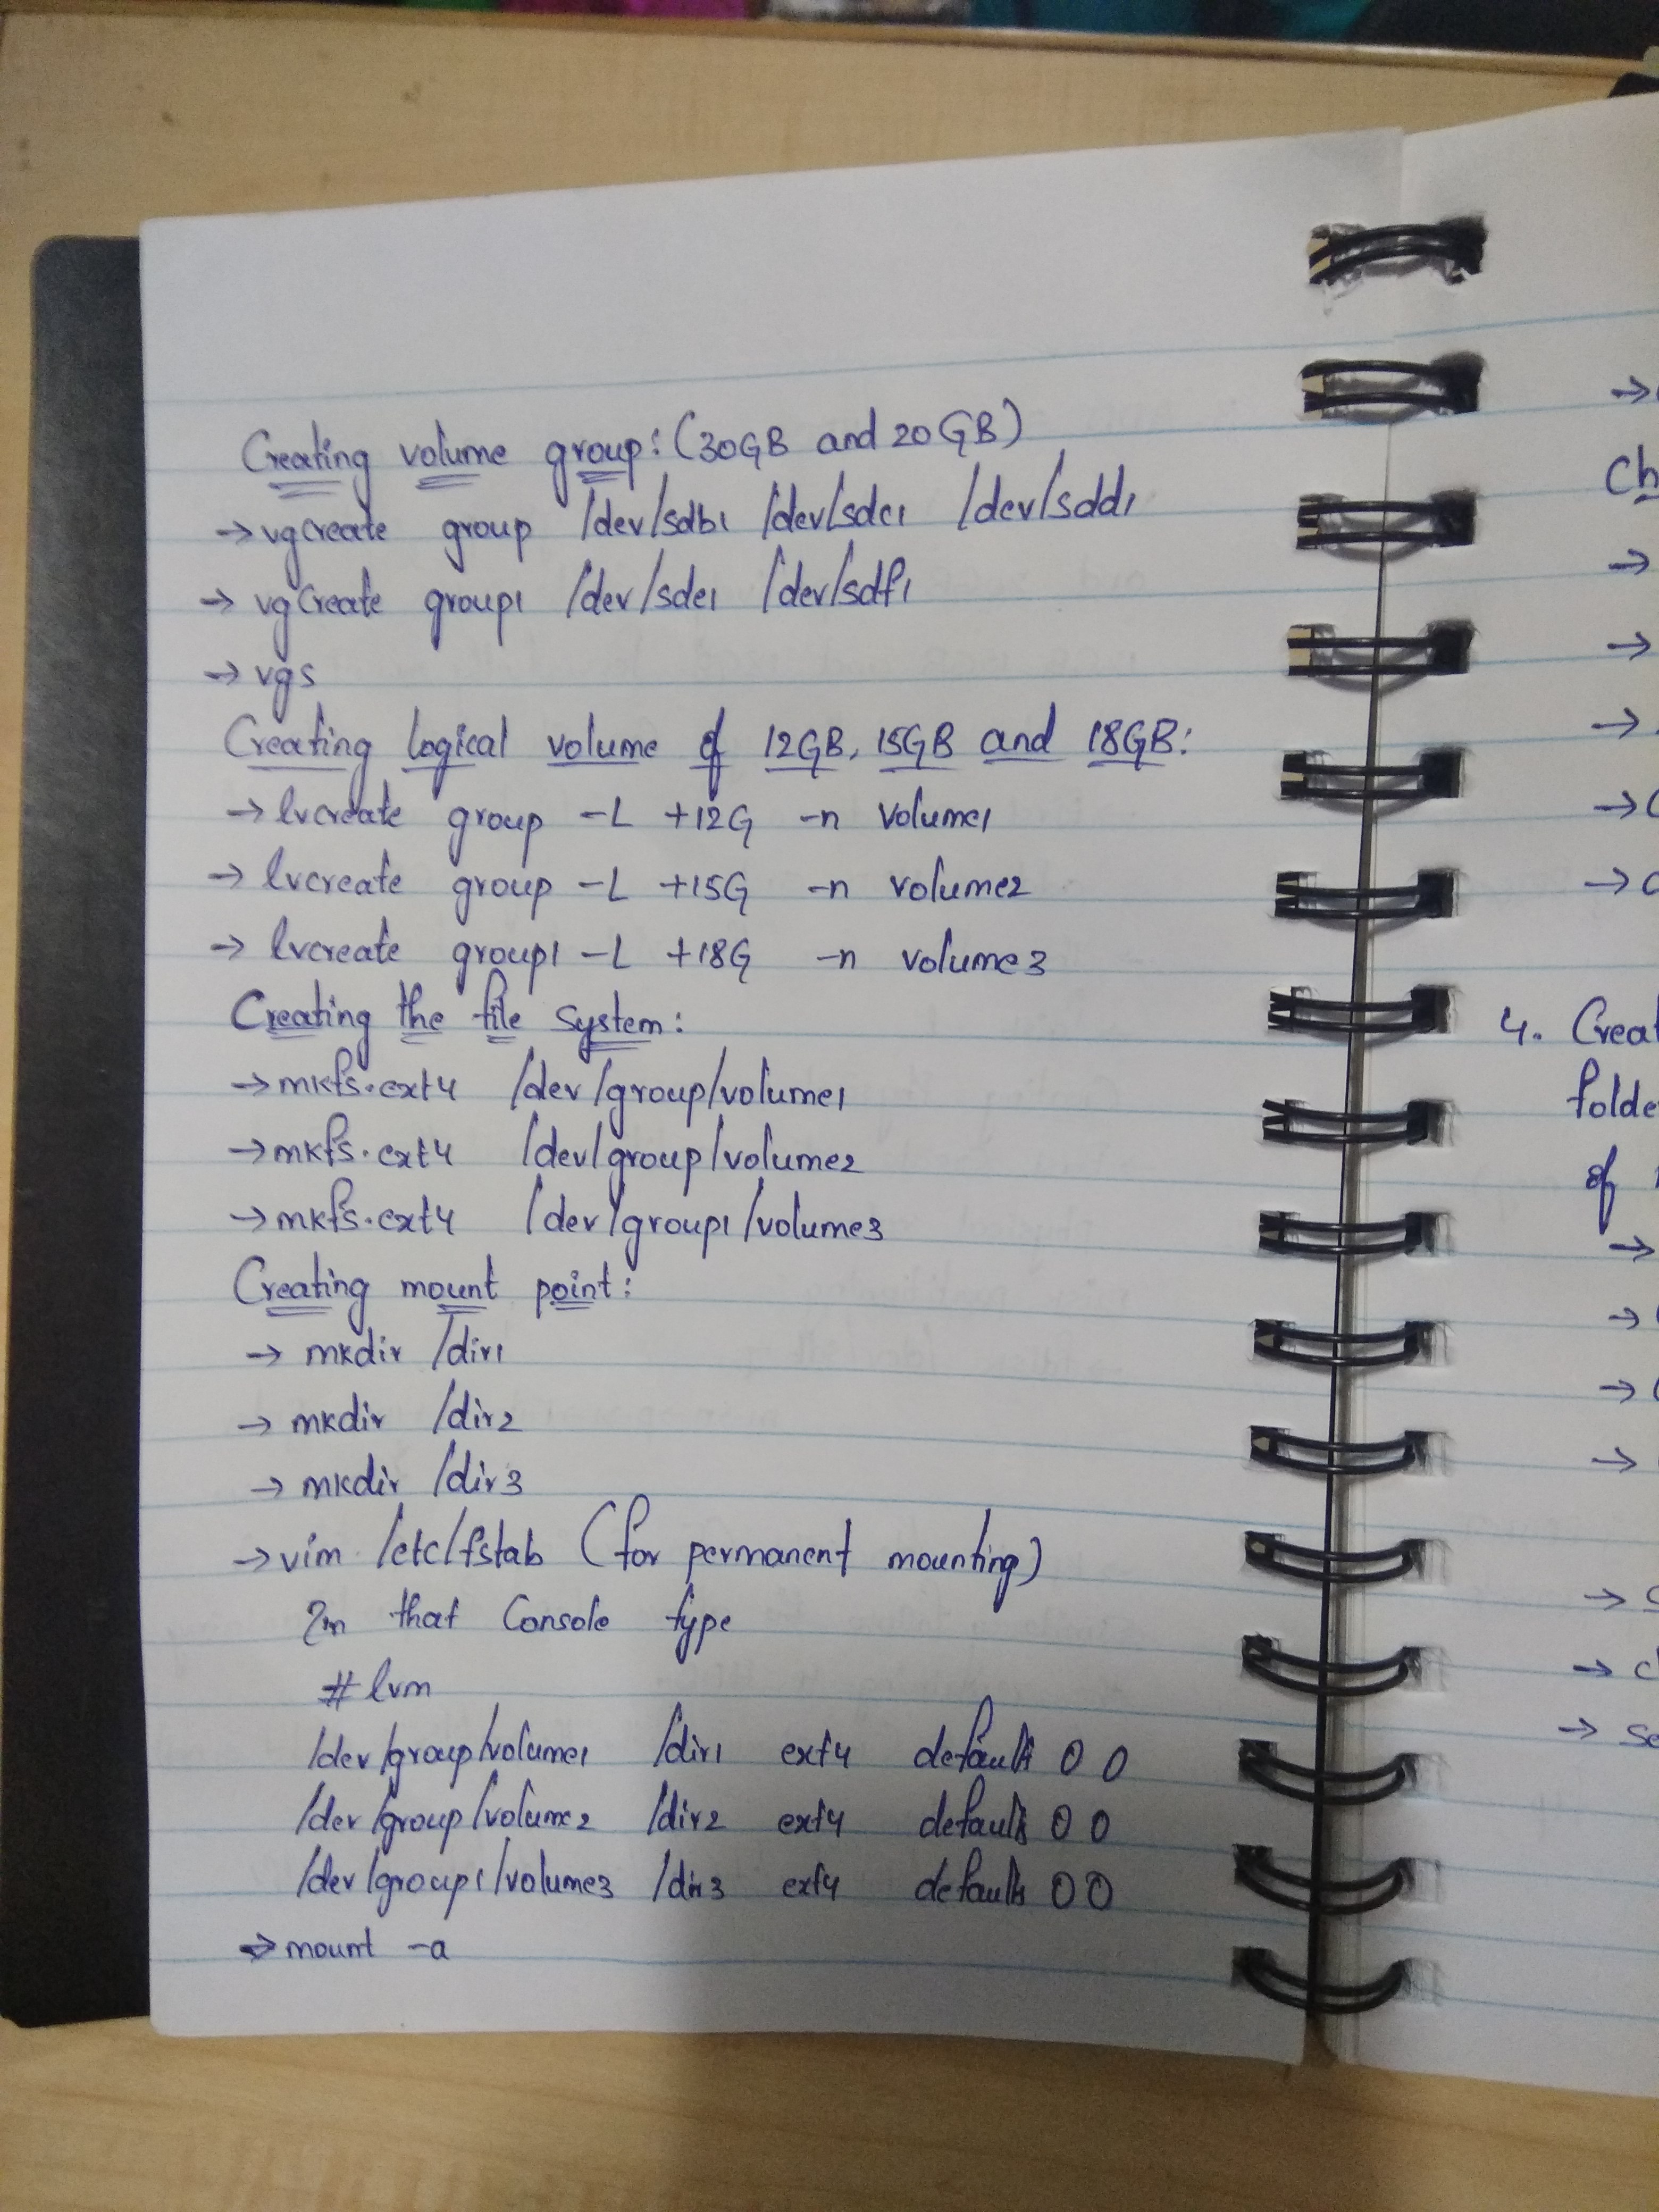 Creating volume group: (30GB and 20GB)
→ vgcreate group /dev/sdb1 /dev/sdc1 /dev/sdd1
→ vgcreate group1 /dev/sde1 /dev/sdf1
→ vgs
Creating logical volume of 12GB, 15GB and 18GB:
→ lvcreate group -L +12G -n volume1
→ lvcreate group -L +15G -n volume2
→ lvcreate group1 -L +18G -n volume3
Creating the file system:
→ mkfs.ext4 /dev/group/volume1
→ mkfs.ext4 /dev/group/volume2
→ mkfs.ext4 /dev/group1/volume3
Creating mount point:
→ mkdir /dir1
→ mkdir /dir2
→ mkdir /dir3
→ vim /etc/fstab (for permanent mounting)
In that console type
# lvm
/dev/group/volume1 /dir1 ext4 defaults 0 0
/dev/group/volume2 /dir2 ext4 defaults 0 0
/dev/group1/volume3 /dir3 ext4 defaults 0 0
→ mount -a
4.
of